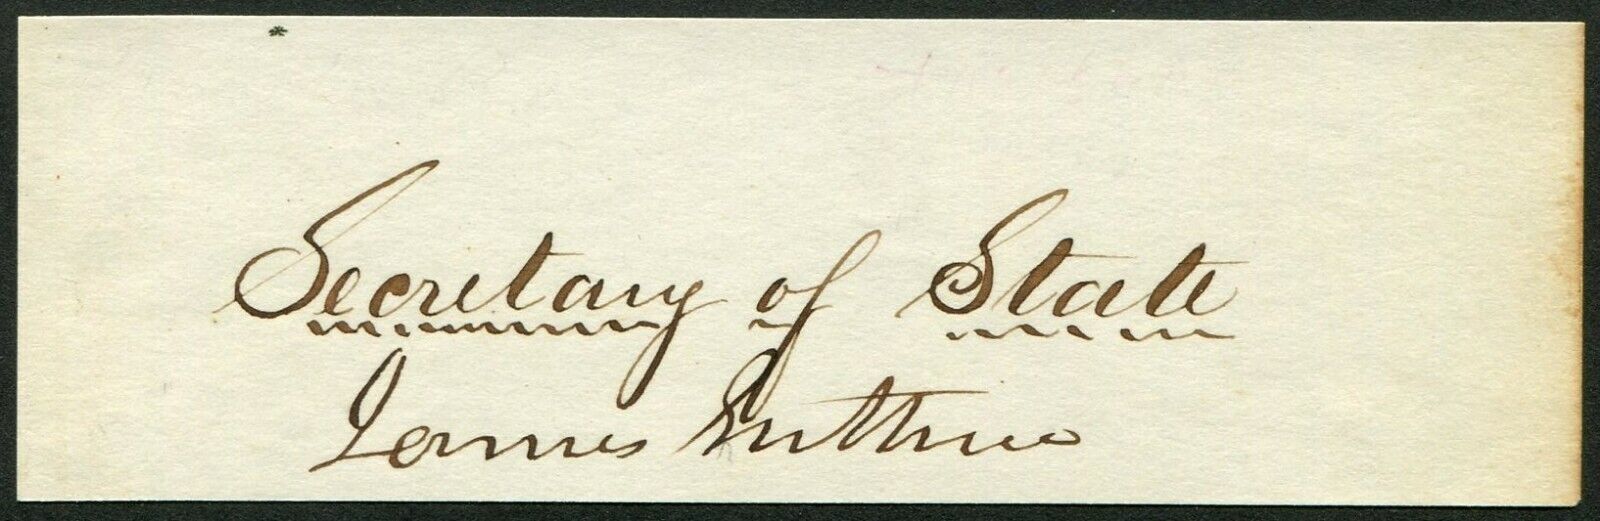 Secretary of State
James Guthrie